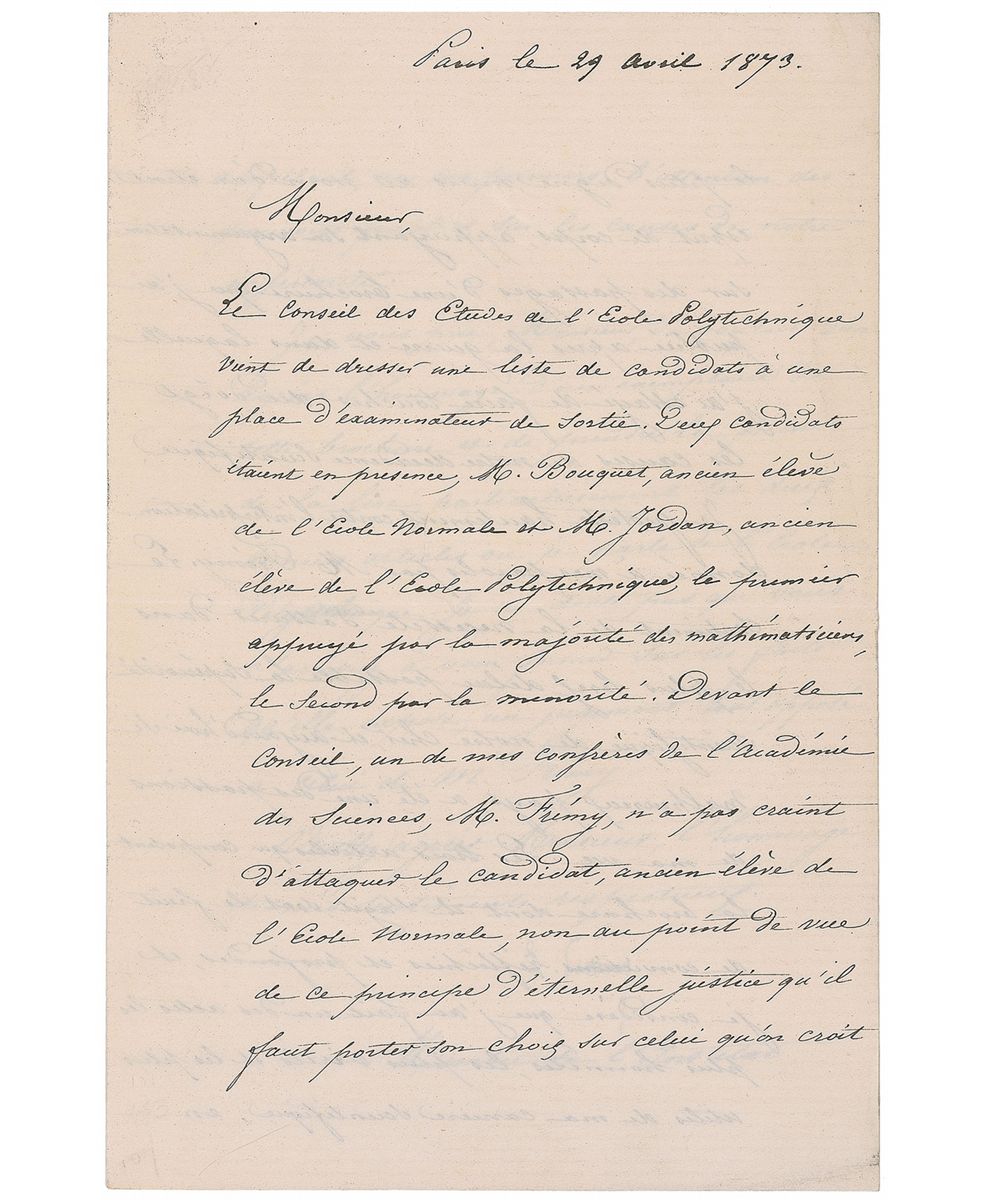 Paris le 29 avril 1873.
Monsieur,
Le Conseil des Etudes de l'Ecole Polytechnique
vient de dresser une liste de candidats à une
place d'éxaminateur de sortie. Deux candidats
étaient en présence, M. Bouquet, ancien élève
de l'Ecole Normale et M. Jordan, ancien
élève de l'Ecole Polytechnique, le premier
appuyé par la majorité des mathématiciens,
le second par la minorité. Devant le
Conseil, un de mes confrères de l'Académie
des Sciences, M. Frémy, n'a pas craint
d'attaquer le candidat, ancien élève de
l'Ecole Normale, non au point de vue
de ce principe d'éternelle justice qu'il
faut porter son choix sur celui qu'on croit